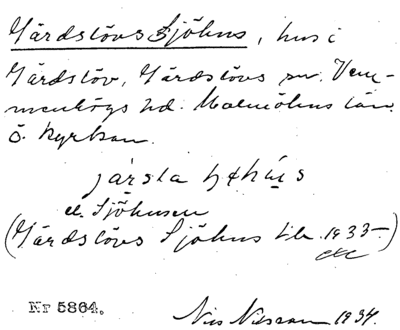 Gärdslövs Sjöhus, hus i
Gärdslöv, Gärdslövs sn. Vem-
menhögs hd. Malmöhus län.
Ö. Kyrkan.
jạ́rsla
el. Sjöhusen
(Gärdslövs Sjöhus tlr. 1933-)
etc
Nr 5864.
Nils Nilsson 1934.